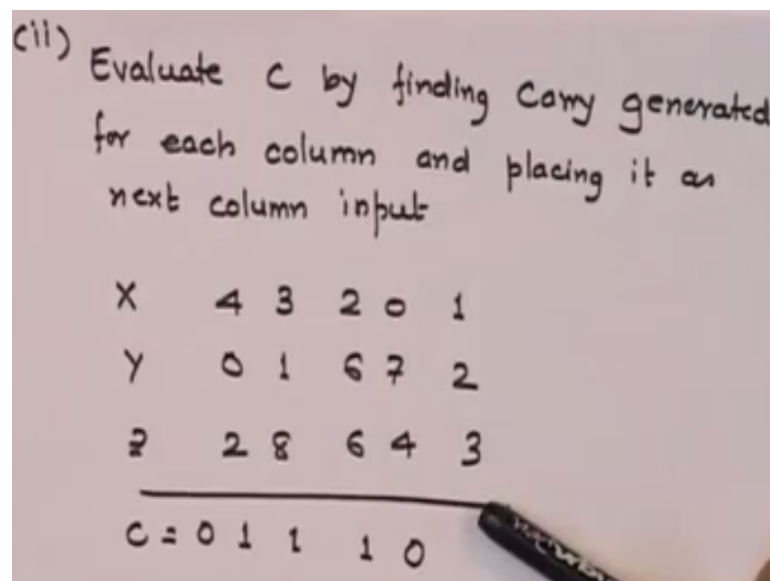 (ii) Evaluate C by finding Carry generated
for each column and placing it as
next column input
X 4 3 2 0 1
Y 0 1 6 7 2
Z 2 8 6 4 3
C = 0 1 1 1 0